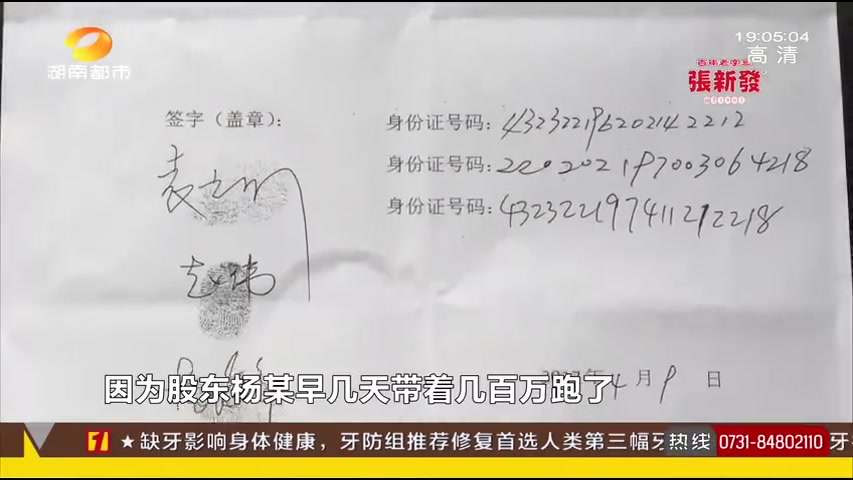 湖南都市
19:05:04
高清
百年老字号
張新發
签字（盖章）：
身份证号码：432322196202142212
身份证号码：220202197003064218
身份证号码：
赵伟
年4月9日
因为股东杨某早几天带着几百万跑了
★缺牙影响身体健康，牙防组推荐修复首选人类第三幅牙
热线 0731-84802110